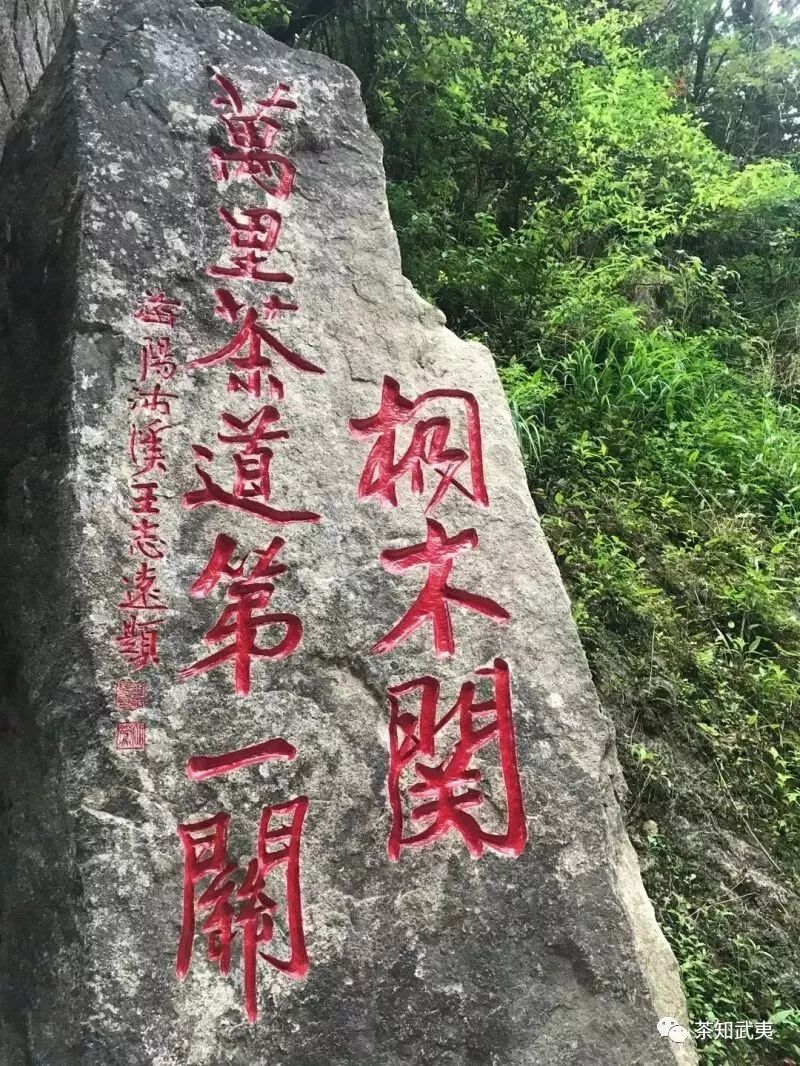 桐木関
萬里茶道第一關
陽溪王志遠題
茶知武夷